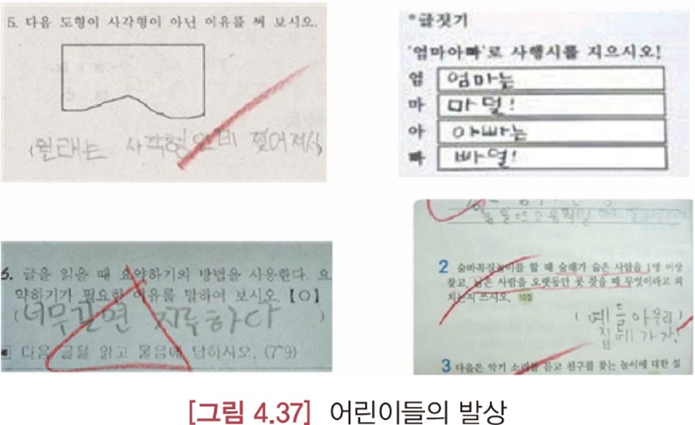 5. 다음 도형이 사각형이 아닌 이유를 써 보시오.
(원래는 사각형인데 찢어져서)
*글짓기
'엄마아빠'로 사행시를 지으시오!
엄 엄마는
마 마덜!
아 아빠는
빠 빠덜!
6. 글을 읽을 때 요약하기의 방법을 사용한다. 요
약하기가 필요한 이유를 말하여 보시오【O】
(너무길면 지루하다
■ 다음 글을 읽고 물음에 답하시오. (7~9)
2 숨바꼭질놀이를 할 때 술래가 숨은 사람을 1명 이상
찾고, 남은 사람을 오랫동안 못 찾을 때 무엇이라고 외
치는지 쓰시오. 10점
(얘들아우리
집에가자!
3 다음은 악기 소리를 듣고 친구를 찾는 놀이에 대한 설
[그림 4.37] 어린이들의 발상